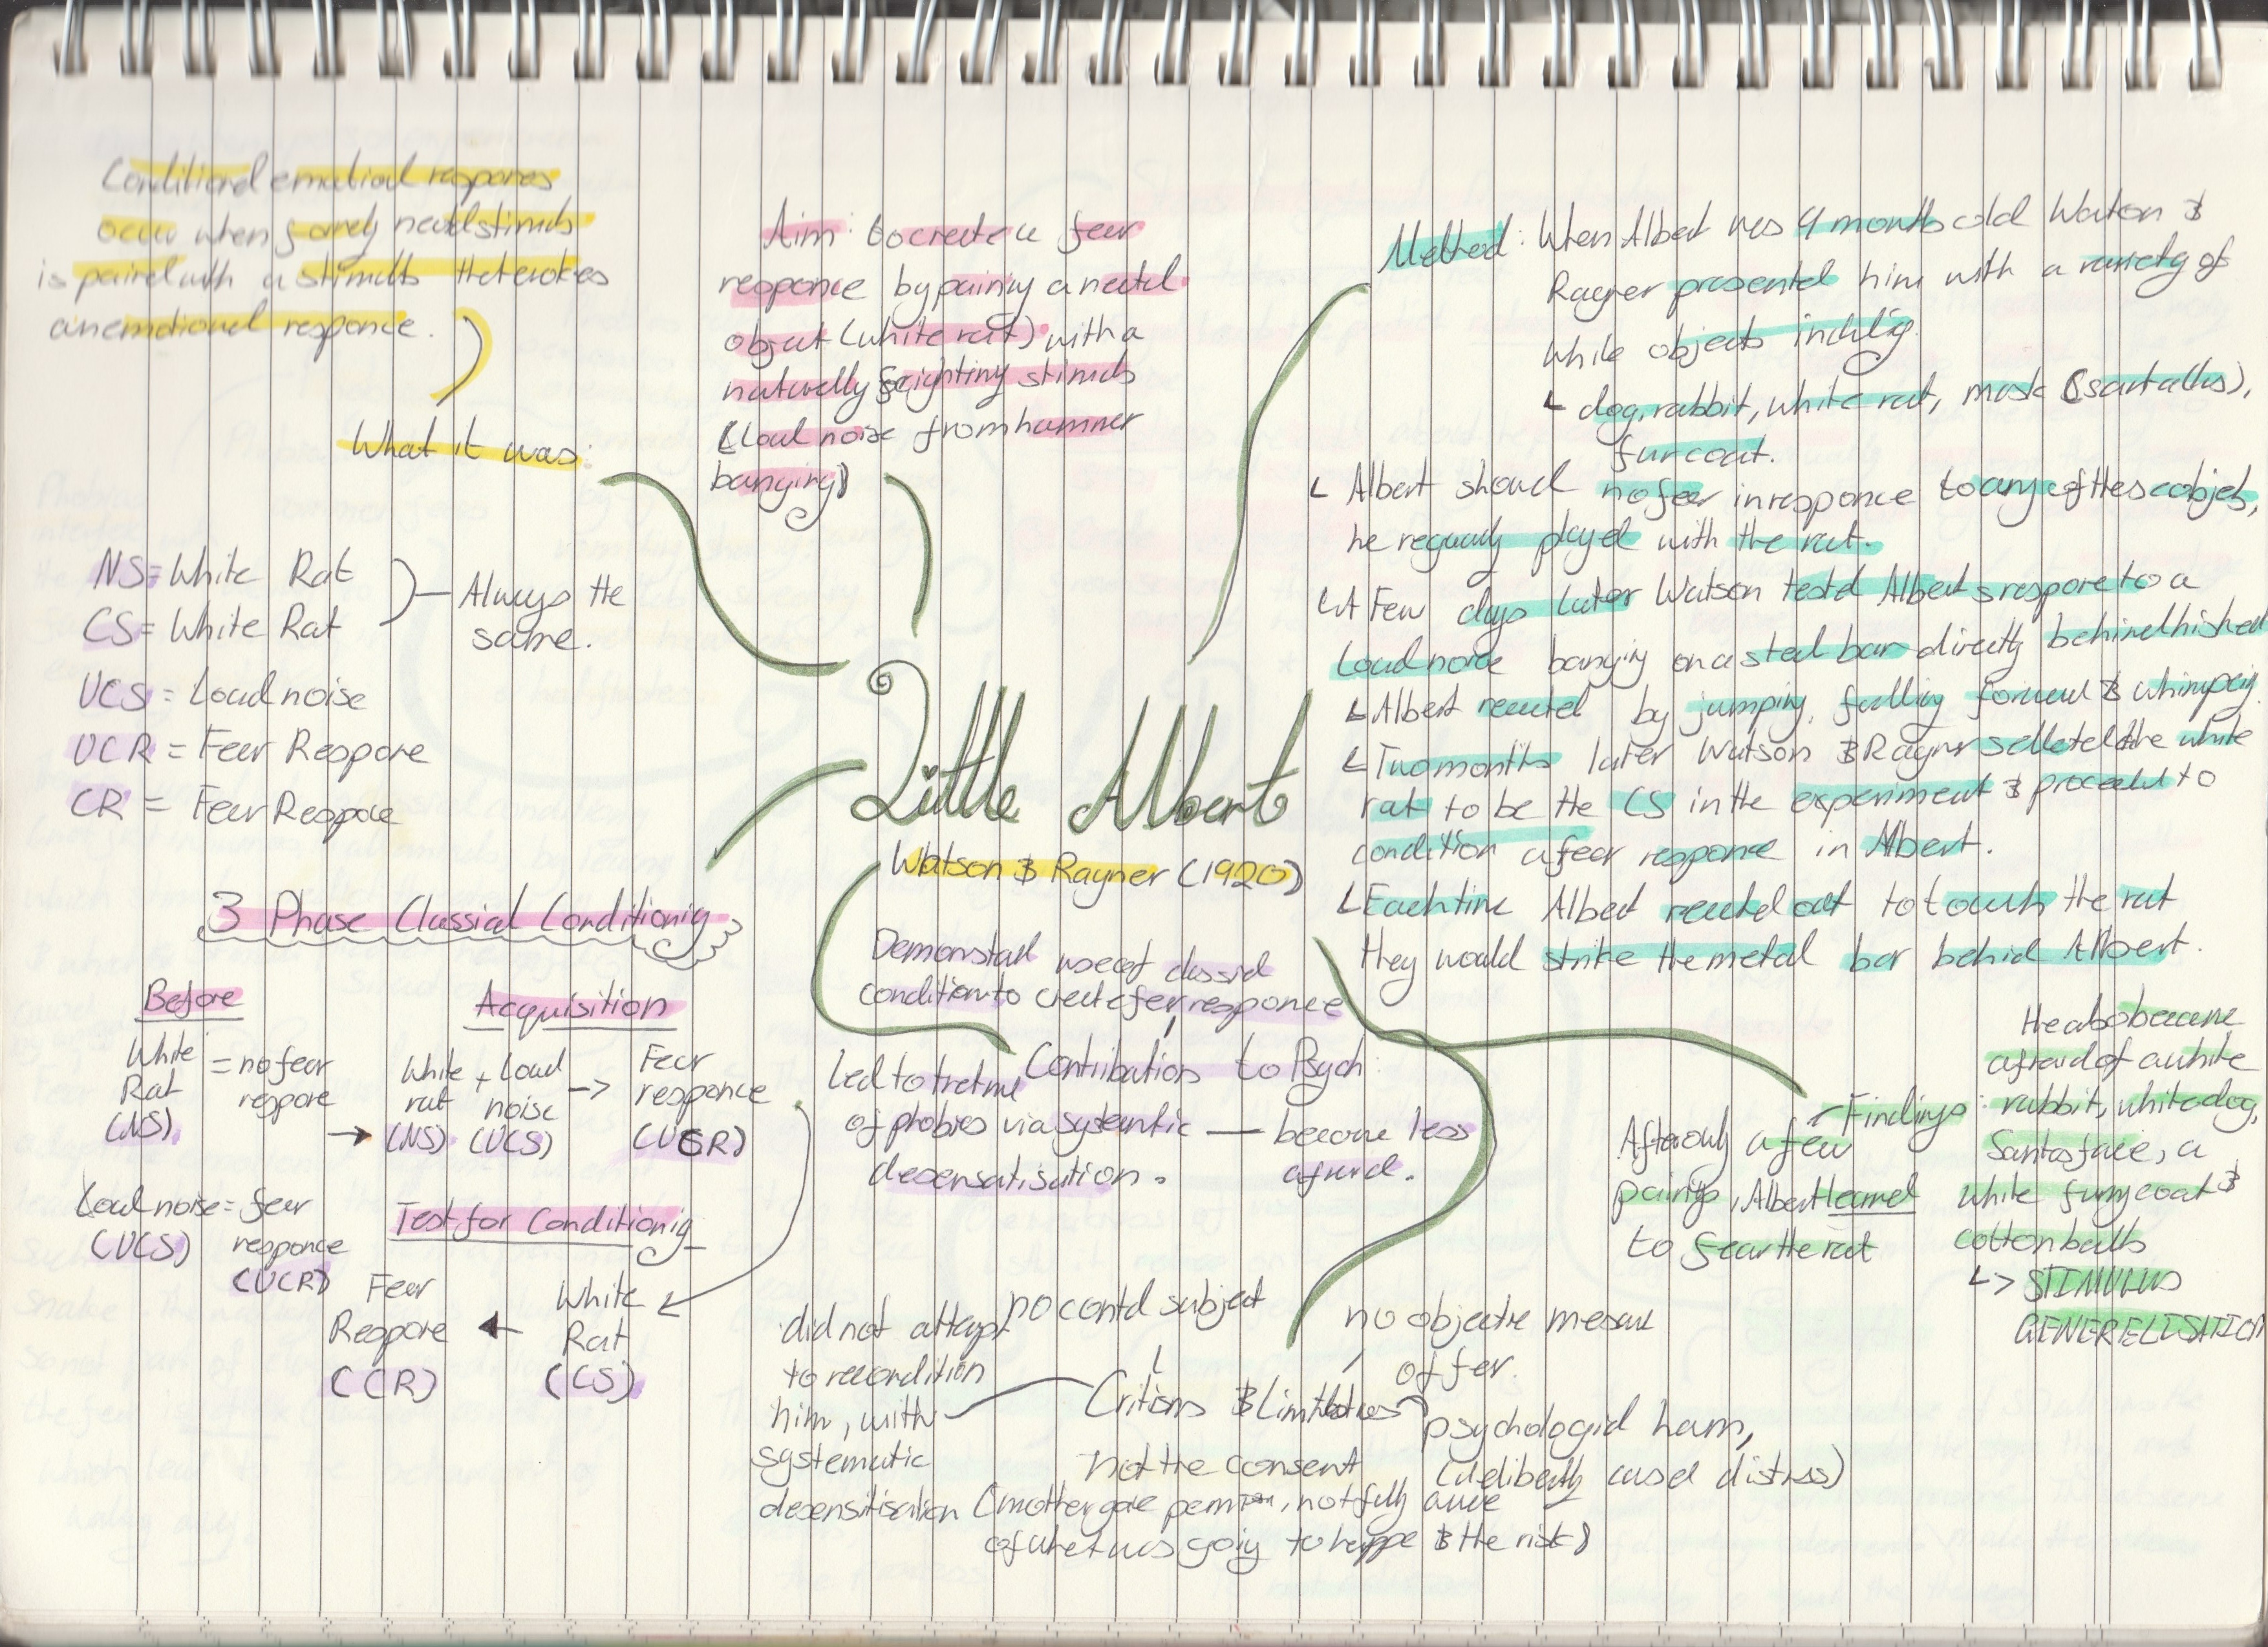 Conditional emotional responses
occur when formely neutral stimuls
is paired with a stimuls that evokes
an emotional responce.
What it was:
Aim: to create a fear
responce by pairing a neutral
object (white rat) with a
naturally frightining stimuls
(loud noise from hammer
banging)
Method: When Albert was 9 months old Watson &
Rayner presented him with a variety of
while objects including.
↳ dog, rabbit, white rat, mask (santa clus),
fur coat.
↳ Albert showed no fear in responce to any of these objets,
he reguarly played with the rat.
↳ A Few days later Watson tested Alberts respore to a
Loud noise banging on a steel bar directly behind his head
↳ Albert reacted by jumping, falling forward & whimpering.
↳ Two months later Watson & Rayner selleted the white
rat to be the CS in the experiment & proceeded to
condition a fear responce in Albert.
↳ Each time Albert reached out to touch the rat
they would strike the metal bar behind Albert.
NS = White Rat
CS = White Rat
Always the
same.
UCS = Loud noise
UCR = Fear Respore
CR = Fear Respore
Little Albert
Watson & Rayner (1920)
3 Phase Classical Conditioning
Before
White = no fear
Rat respore
(NS)
Loud noise = fear
(UCS) responce
(UCR)
→
Acquisition
White + Loud -> Fear
rat noise responce
(NS) (UCS) (UCR)
Test for Conditioning
Fear White
Respore ← Rat
(CR) (CS)
Demonstrated use of classical
condition to create fear responce
Contributions to Psych:
Led to tretme
of phobies via systemtic — become less
desensatisation. afraid.
Findings:
After only a few
pairings, Albert learned
to fear the rat
He also became
afraid of a white
rabbit, white dog,
Santas face, a
white furry coat &
cotton balls
↳> STIMULUS
GENERELISATION
did not attempt
to recondition
him, with
systematic
desensitisation
no contol subject
no objective mesure
of fer.
Critisms & Limitations
psychological harm,
(deliberatly cased distress)
not the consent
(mother gave permission, not fully aware
of what was going to happe & the risk)